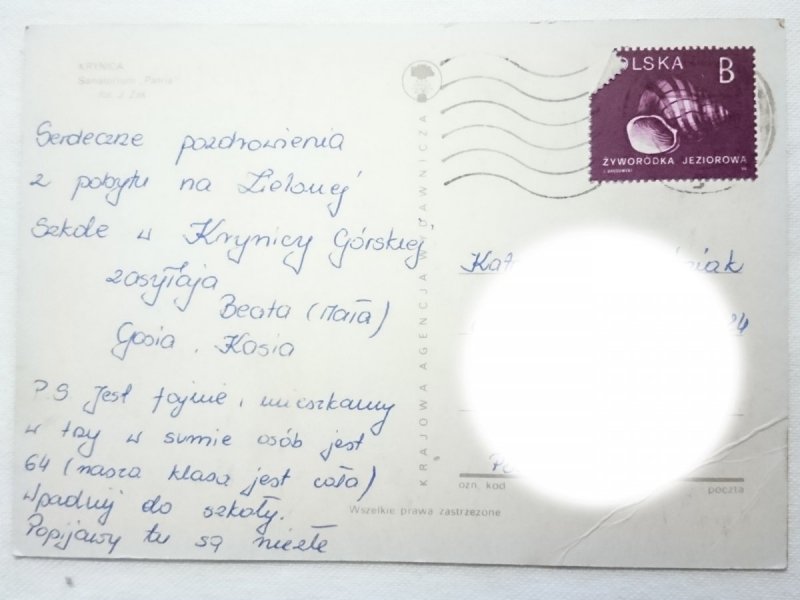 KRYNICA
Sanatorium „Patria"
fot. J. Żak
Serdeczne pozdrowienia
z pobytu na Zielonej
Szkole w Krynicy Górskiej,
zasyłaja
Beata (Mała)
Gosia, Kasia
P.S Jest fajnie, mieszkamy
w trzy w sumie osób jest
64 (nasza klasa jest cała)
Wpadnij do szkoły.
Popijawy tu są niezłe
KRAJOWA AGENCJA WYDAWNICZA
Wszelkie prawa zastrzeżone
OLSKA B
ŻYWORÓDKA JEZIOROWA
Kat
niak
24
ozn. kod
poczta